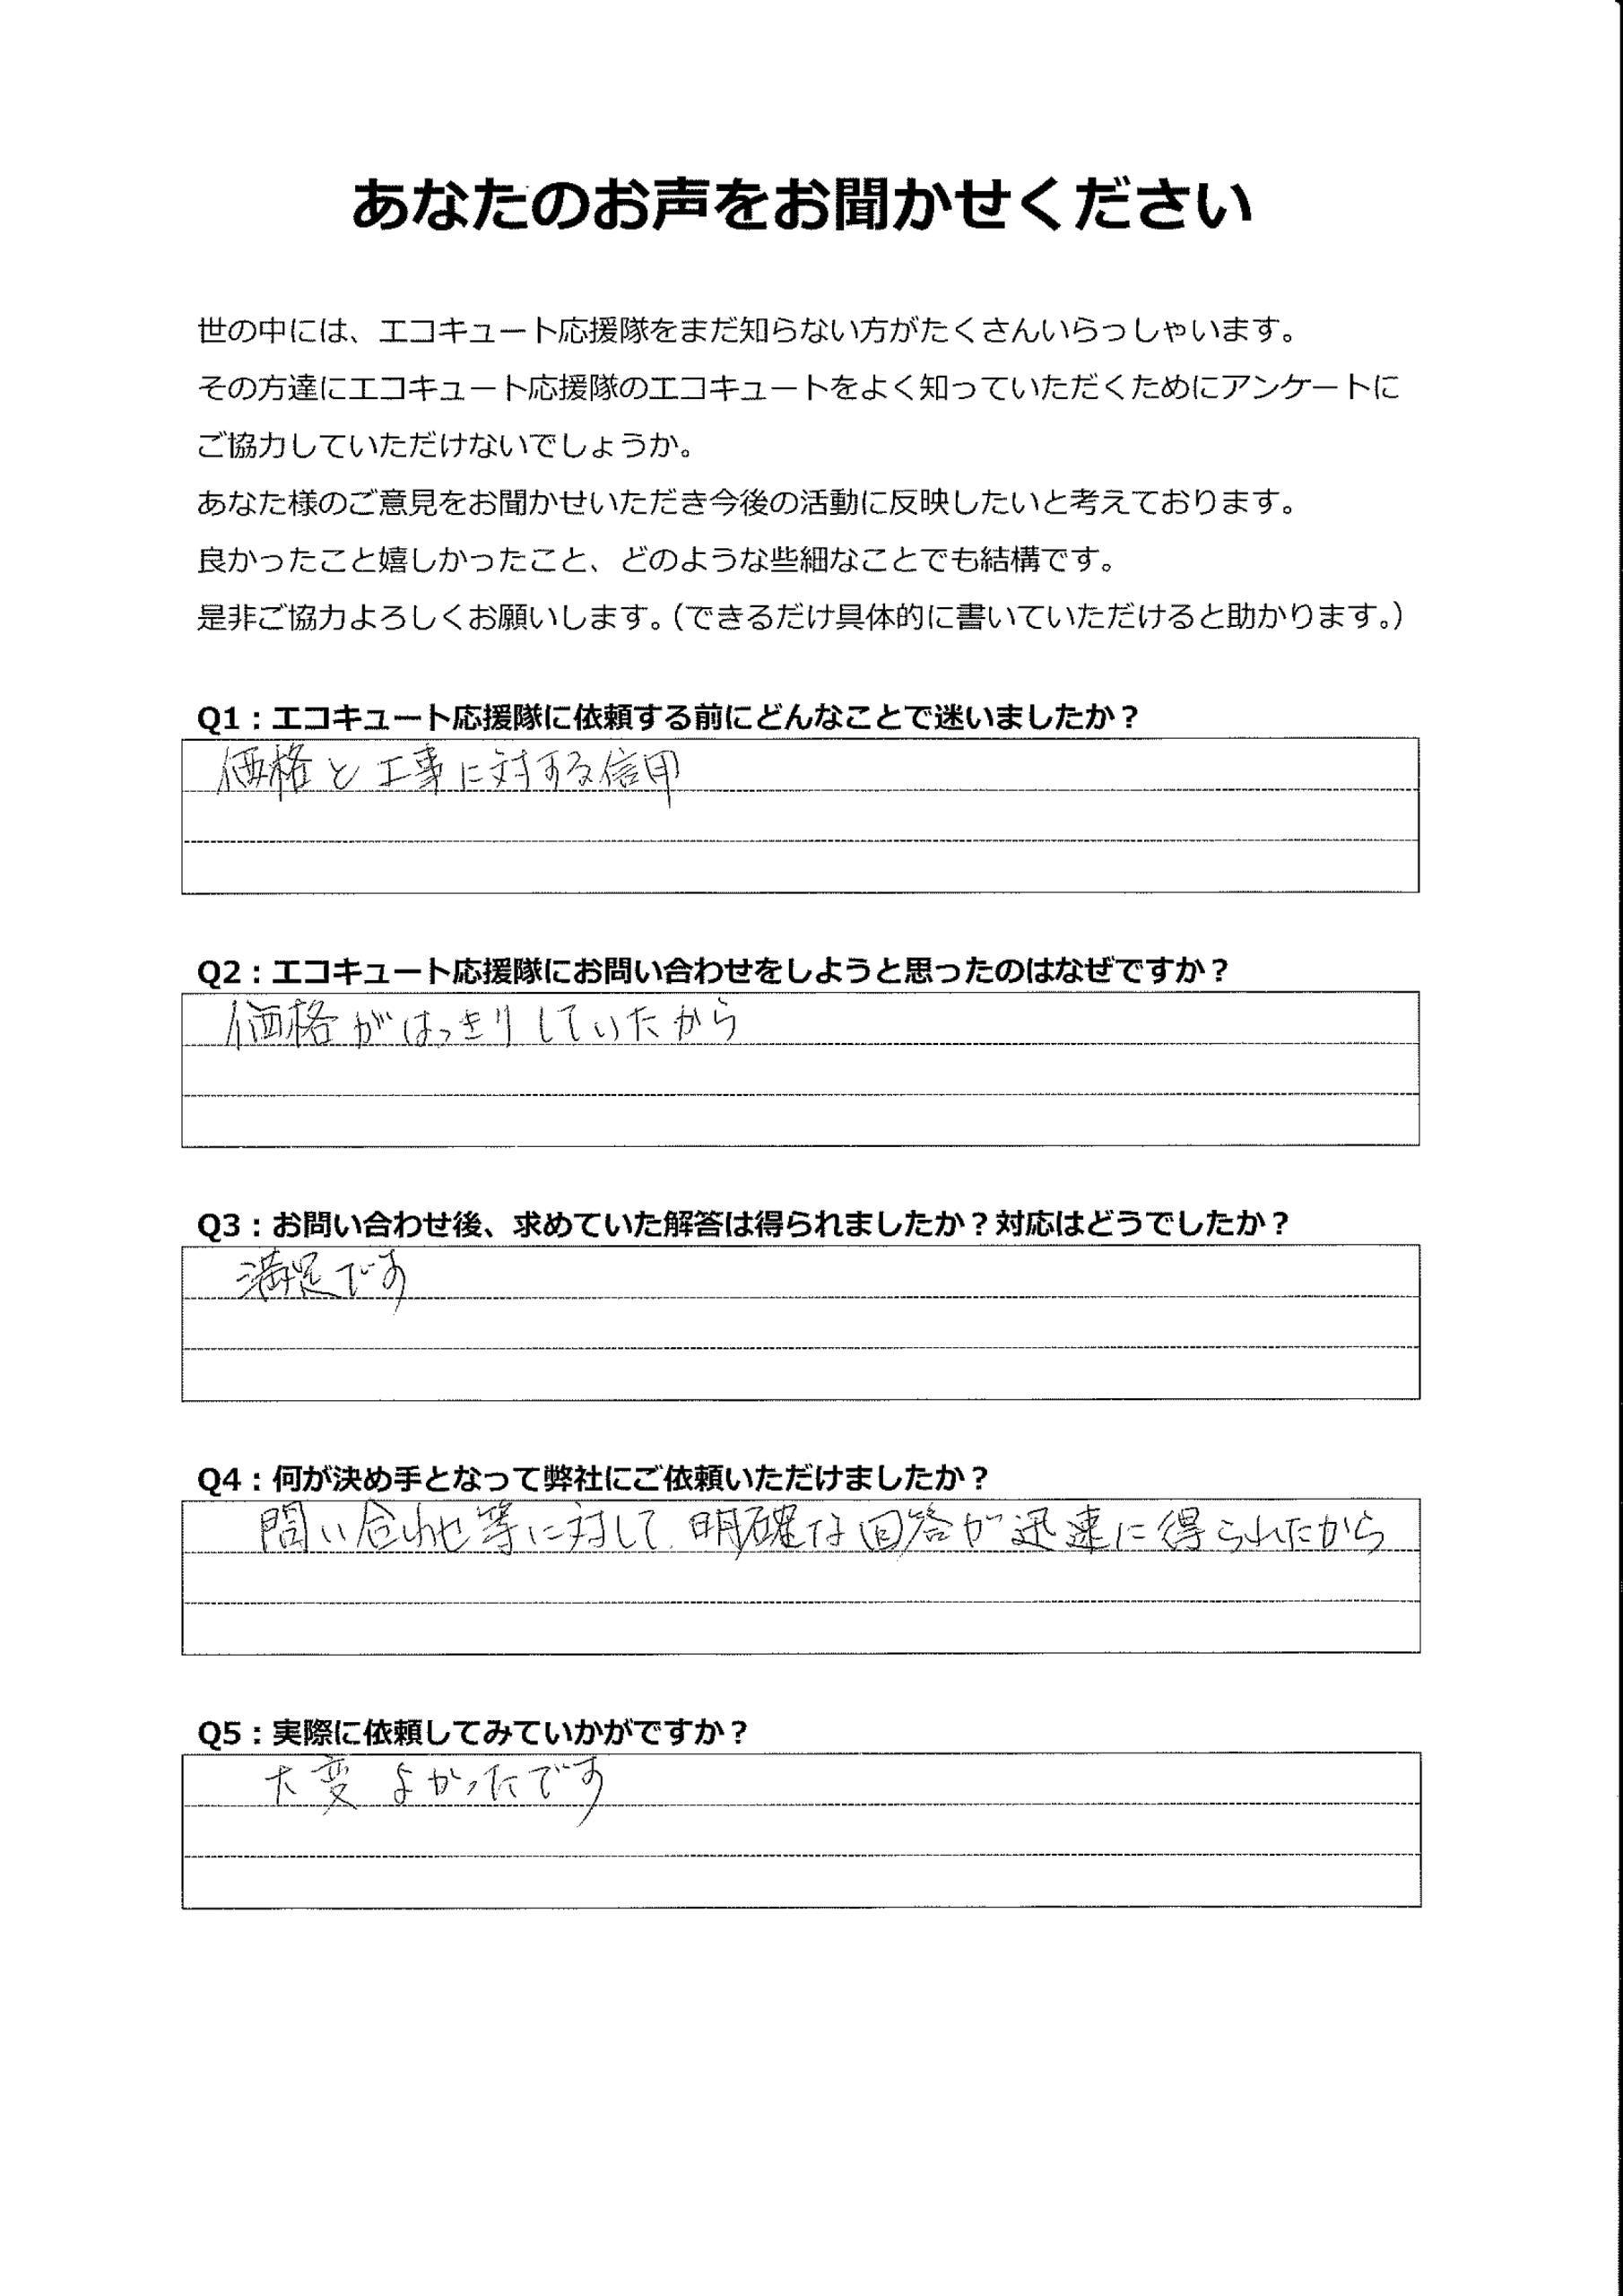 あなたのお声をお聞かせください
世の中には、エコキュート応援隊をまだ知らない方がたくさんいらっしゃいます。
その方達にエコキュート応援隊のエコキュートをよく知っていただくためにアンケートに
ご協力していただけないでしょうか。
あなた様のご意見をお聞かせいただき今後の活動に反映したいと考えております。
良かったこと嬉しかったこと、どのような些細なことでも結構です。
是非ご協力よろしくお願いします。（できるだけ具体的に書いていただけると助かります。）
Q1：エコキュート応援隊に依頼する前にどんなことで迷いましたか？
価格と工事に対する信用
Q2：エコキュート応援隊にお問い合わせをしようと思ったのはなぜですか？
価格がはっきりしていたから
Q3：お問い合わせ後、求めていた解答は得られましたか？対応はどうでしたか？
満足です
Q4：何が決め手となって弊社にご依頼いただけましたか？
問い合わせ等に対して、明確な回答が迅速に得られたから
Q5：実際に依頼してみていかがですか？
大変よかったです